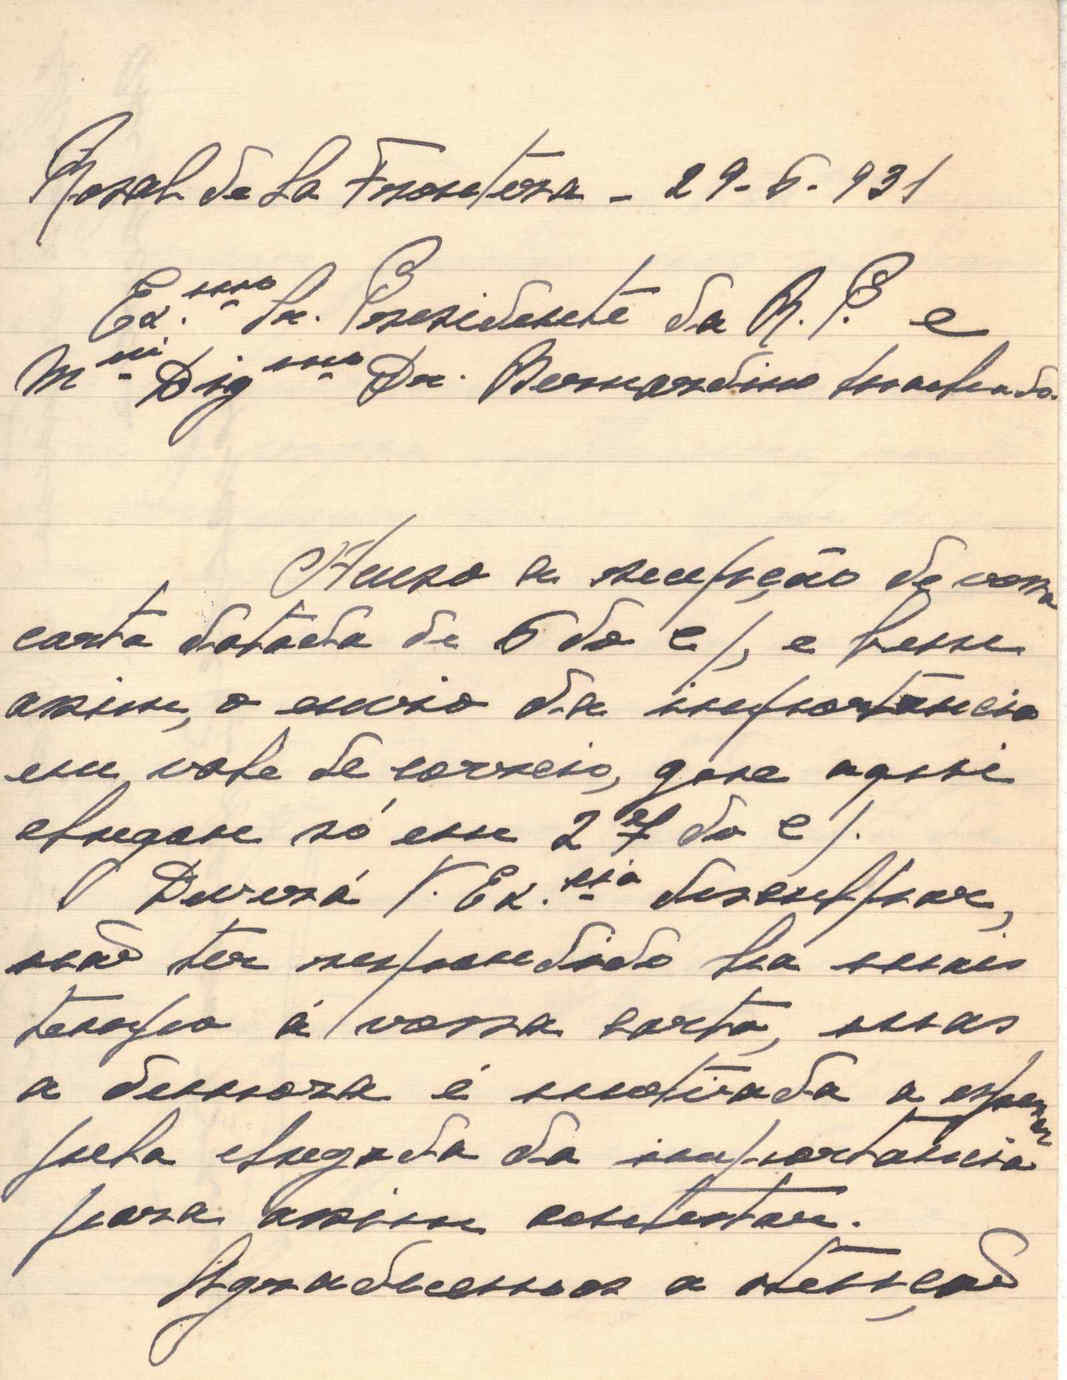 Rosal de La Frontera - 29-6-931
Ex.mo Sr. Presidente da R. P. e
Mui Digmo Dr. Bernardino Machado.
Acuso a recepção de vossa
carta datada de 6 do c/, e bem
assim, o envio da importancia
em vale de correio, que aqui
chegou só em 27 do c/.
Deverá V. Ex.cia desculpar,
não ter respondido ha mais
tempo á vossa carta, mas
a demora é motivada a esperar
pela chegada da importancia
para assim contestar.
Agradecemos a atenção